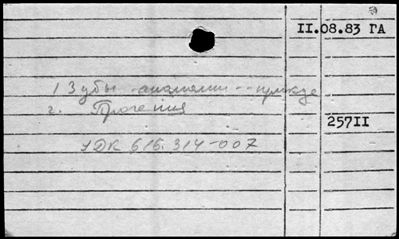 II.08.83 ГА
1 Зубы - аномалии -- прикус
2. Прогения
25711
УДК 616.314-007